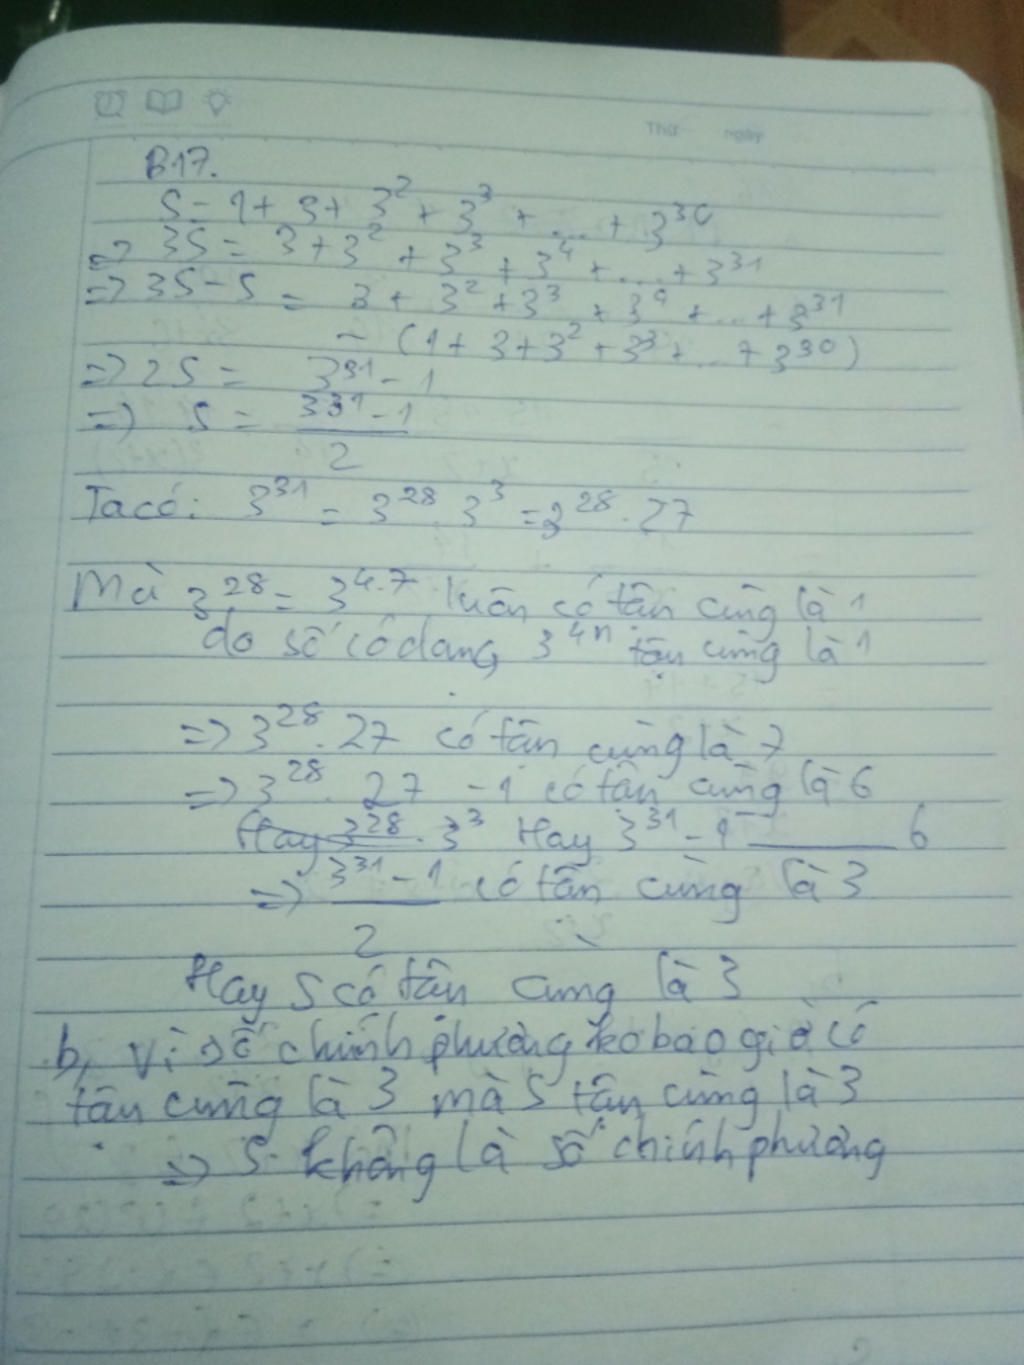 Thứ ngày
B17.
S = 1 + 3 + 3² + 3³ + ... + 3³⁰
=> 3S = 3 + 3² + 3³ + 3⁴ + ... + 3³¹
=> 3S - S = 3 + 3² + 3³ + 3⁴ + ... + 3³¹
- (1 + 3 + 3² + 3³ + ... + 3³⁰)
=> 2S = 3³¹ - 1
=> S = (3³¹ - 1)/2
Ta có: 3³¹ = 3²⁸ . 3³ = 3²⁸ . 27
Mà 3²⁸ = 3⁴·⁷ luôn có tận cùng là 1
do số có dạng 3⁴ⁿ tận cùng là 1
=> 3²⁸ . 27 có tận cùng là 7
=> 3²⁸ . 27 - 1 có tận cùng là 6
Hay 3²⁸ . 3³ Hay 3³¹ - 1 ______ 6
=> (3³¹ - 1)/2 có tận cùng là 3
Hay S có tận cùng là 3
b, Vì số chính phương ko bao giờ có
tận cùng là 3 mà S tận cùng là 3
=> S không là số chính phương